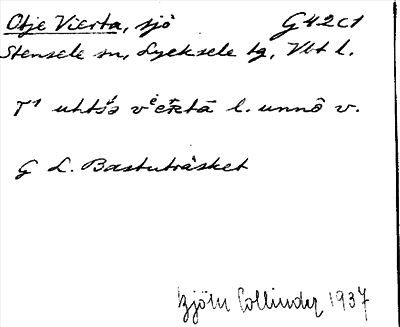 Otje Vierta, sjö G42c1
Stensele sn, Lycksele lg, Vbt l.
T¹ uhtsə vɛrtā l. unnô v.
G L. Bastuträsket
Björn Collinder 1937